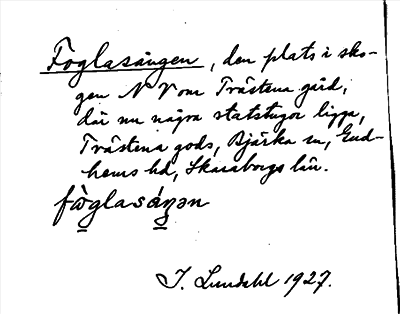 Foglasången, den plats i sko-
gen NV om Trästena gård,
där nu några statstugor ligga,
Trästena gods, Bjärka sn, Gud-
hems hd, Skaraborgs län.
fòglasáŋən
I. Lundahl 1927.